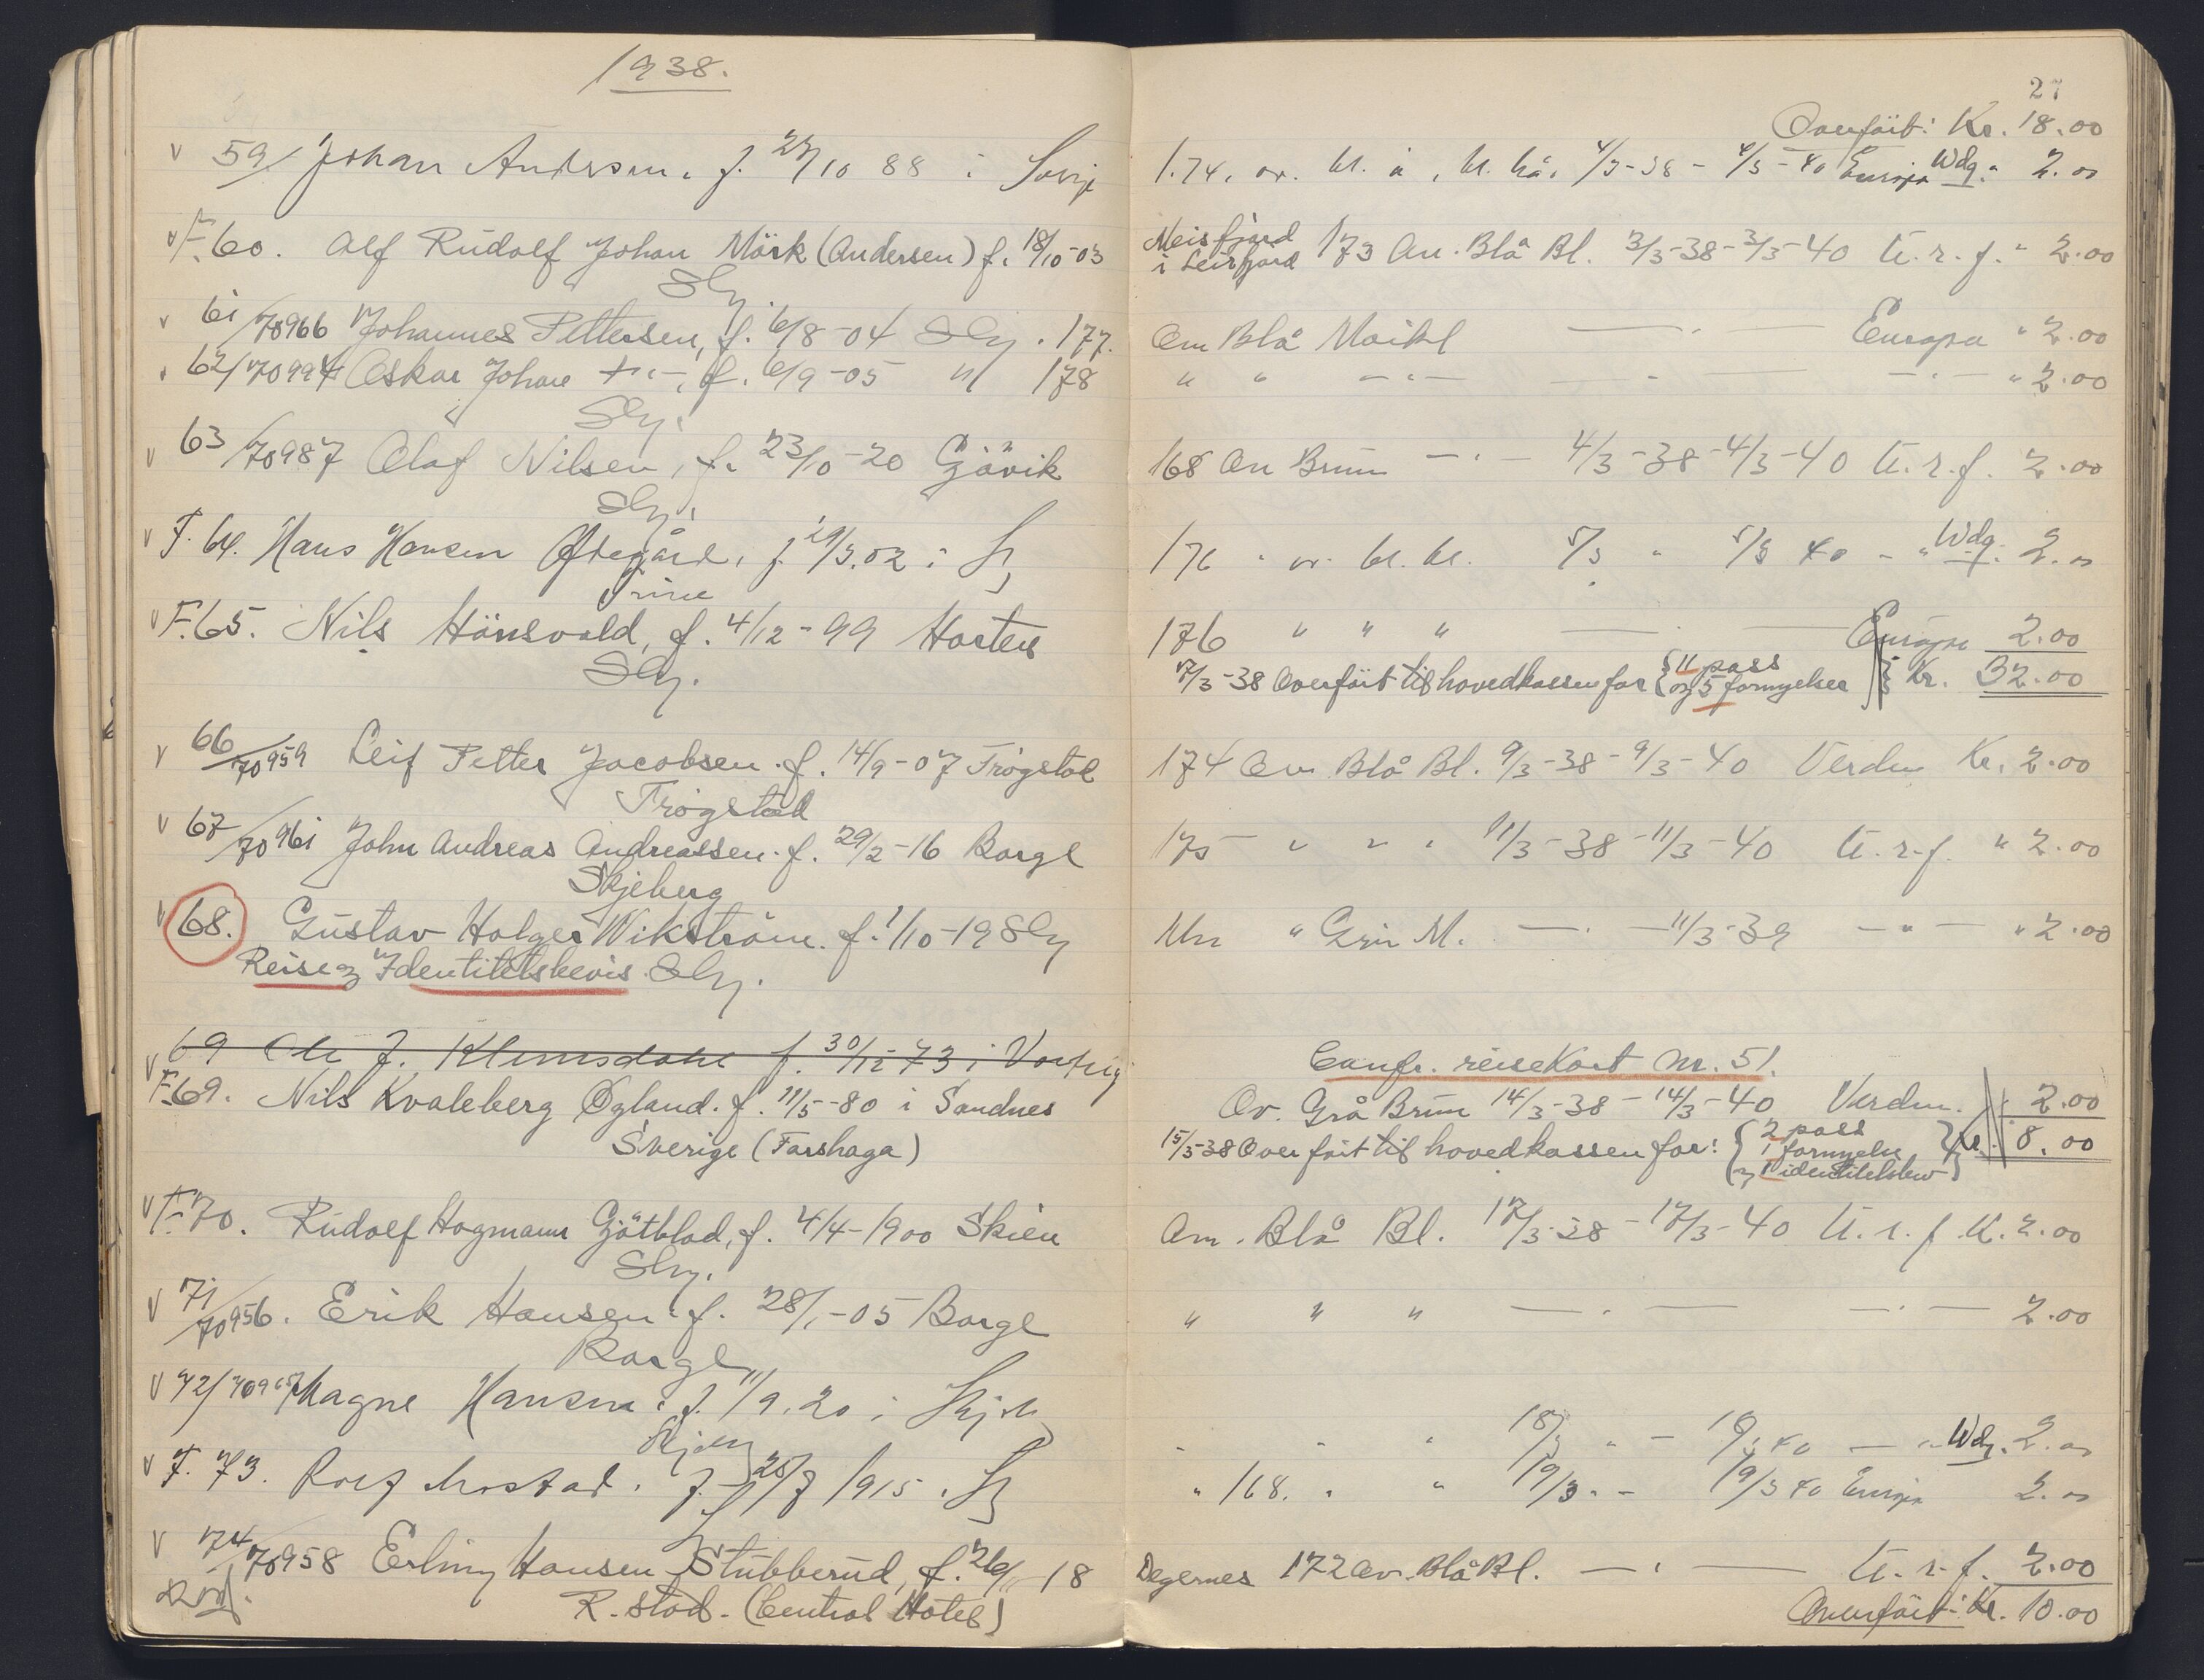 1938.
v 59/ Johan Andersen. f. 27/10 88 i
v F. 60. Alf Rudolf Johan Mörk (Andersen) f. 18/10-03
v 61/70966 Johannes Pettersen, f. 6/8-04 177.
62/70994 Oskar Johan f. 6/9-05 178
v 63/70987 Olaf Nilsen, f. 23/10-20 Gjövik
v F. 64. Hans Hansen f. 02 i
v F. 65. Nils Hönsvald, f. 4/12-99 Horten
v 66/70959 Leif Petter Jacobsen. f. 14/9-07 Trögstad
Trögstad
v 67/70961 John Andreas Andreassen. f. 29/2-16 Borge
Skjeberg
v 68. Gustav Holger Wikström. f. 1/10-19
Reise og Identitetsbevis
v 69 f. 30/12-73 i
F. 69. Nils Kvaleberg Øgland. f. 11/5-80 i Sandnes
Sverige (Forshaga)
v F. 70. Rudolf Hogmann Götblad, f. 4/4-1900 Skien
v 71/70956. Erik Hansen. f. 28/1-05 Borge
Borge
v 72/ Magne Hansen. f. 11/9. 20 i
v F. 73. Rolf f. 1915.
v 74/70958 Erling Hansen Stubberud, f. -18
R.stad. (Central Hotel)
27
Overført: Kr. 18.00
1.74. ov. bl. å, bl. hå. 4/3-38 - 4/3-40 Europa Wdg. " 2.00
Meisfjord
i Leirfjord 173 Av. Blå Bl. 3/3-38-3/3-40 U.r.f. " 2.00
Om Blå Mörkbl — " — Europa " 2.00
" " — " — — " — — " — " 2.00
168 Av Brun — " — 4/3-38-4/3-40 U.r.f. 2.00
176 " ov. bl. bl. 5/3 " 5/3 40 - " Wdg. 2.00
176 " " " — " — Europa 2.00
38 Overført til hovedkassen for { 11 pass og 5 fornyelser } Kr. 32.00
174 Ov Blå Bl. 9/3-38-9/3-40 Verden Kr. 2.00
175 " " " 11/3-38-11/3-40 U.r.f. " 2.00
" M. — " — 11/3-39 — " — " 2.00
reisekort nr. 51.
Ov. Grå Brun 14/3-38-14/3-40 Verden. 2.00
15/3-38 Overført til hovedkassen for: { 2 pass 1 fornyelse og 1 identitetsbev } Kr. 8.00
Om. Blå Bl. 17/3-38-17/3-40 U.r.f. K. 2.00
" " " — " — — " — 2.00
" " " 18/3 " - 18/3 40 — " Wdg. 2.00
" 168. " " 19/3 " - 19/3 40 Europa 2.00
Degernes 172 av. Blå Bl. — " — U.r.f. 2.00
Overført: Kr. 10.00